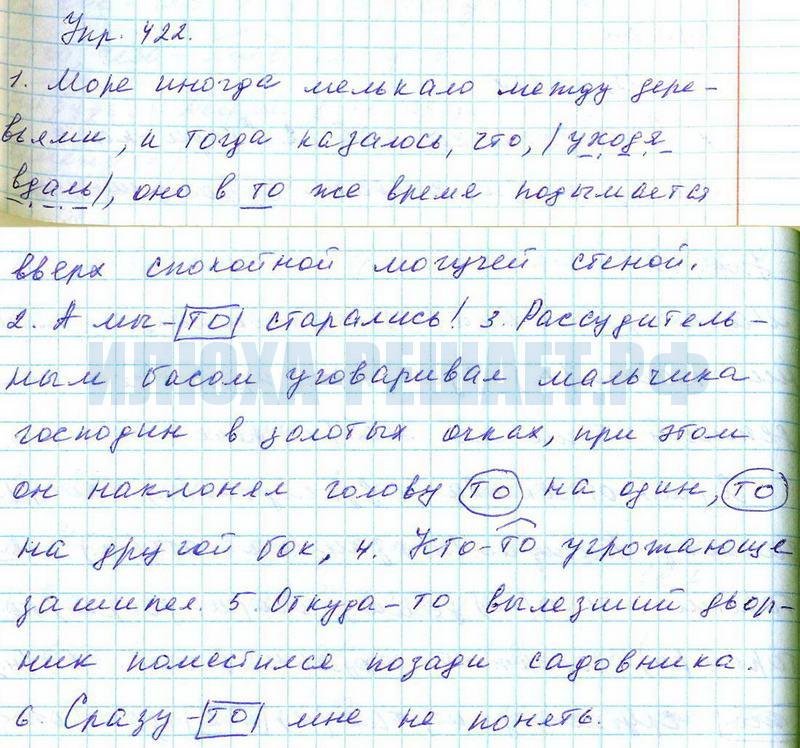 Упр. 422.
1. Море иногда мелькало между дере-
вьями, и тогда казалось, что, |уходя
вдаль|, оно в то же время подымается
вверх спокойной могучей стеной.
2. А мы-|то| старались! 3. Рассудитель-
ИЛЮХА-РЕШАЕТ.РФ
ным басом уговаривал мальчика
господин в золотых очках, при этом
он наклонял голову то на один, то
на другой бок, 4. Кто-то угрожающе
зашипел. 5. Откуда-то вылезший двор-
ник поместился позади садовника.
6. Сразу-|то| мне не понять.